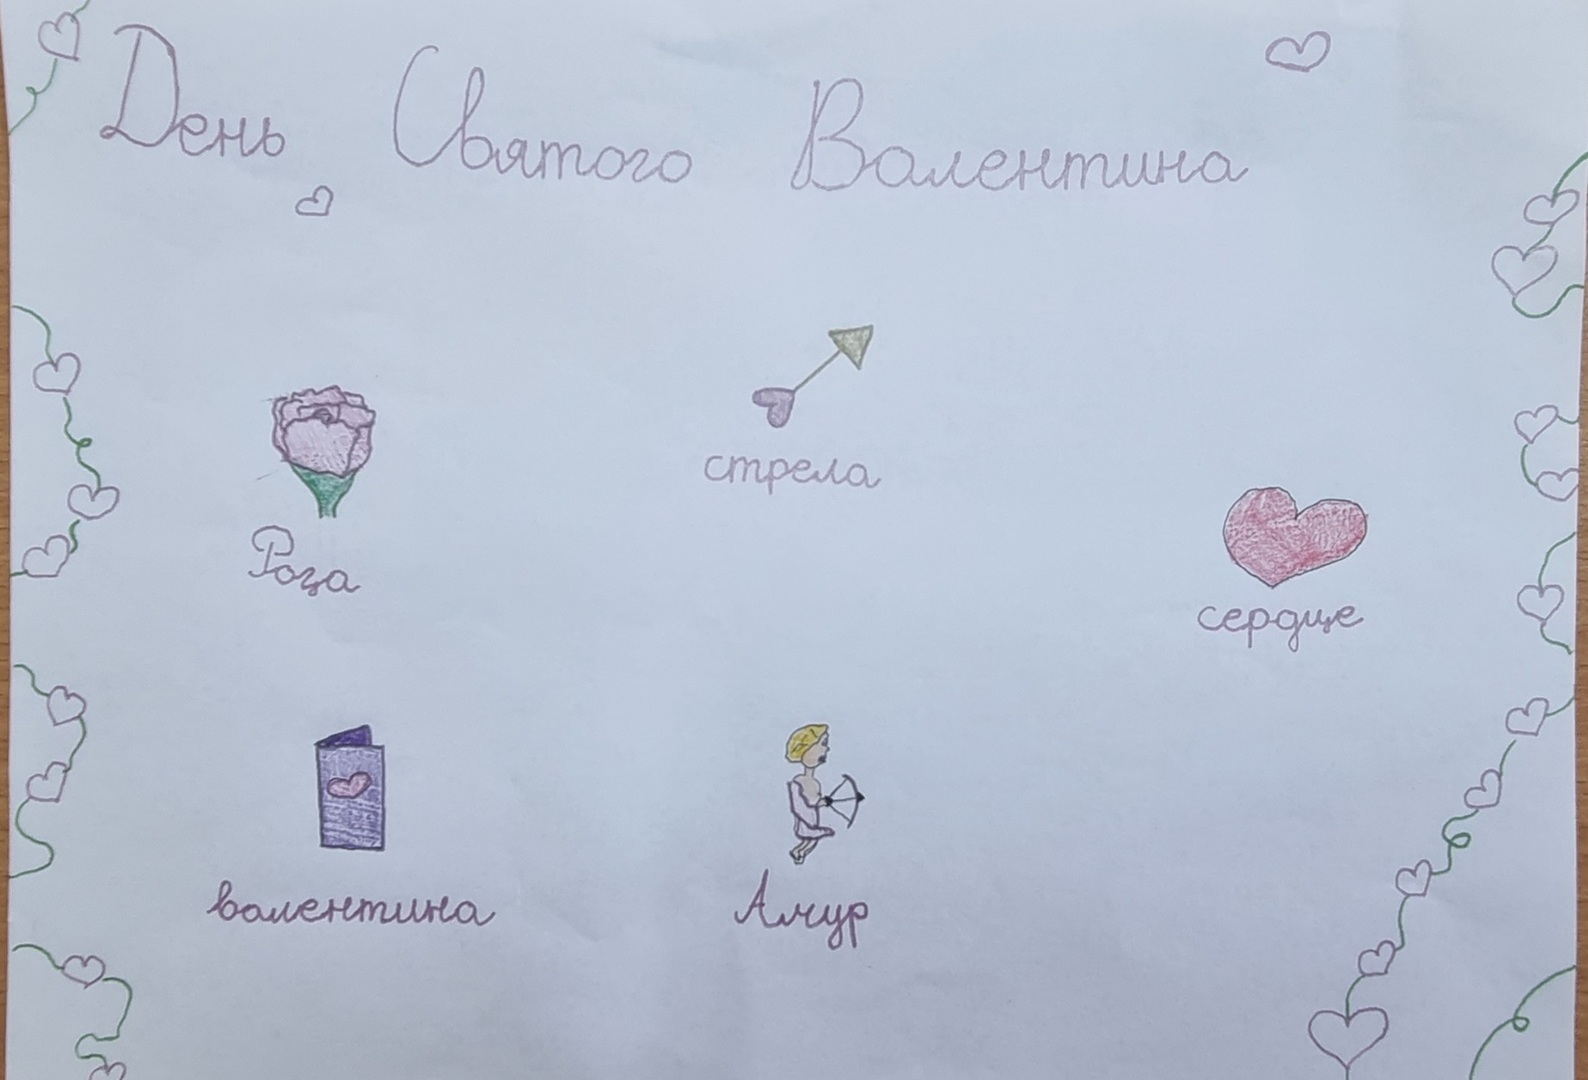 День Святого Валентина
стрела
Роза
сердце
валентина
Амур